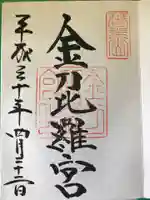 金刀比羅宮
平成三十年四月二十二日